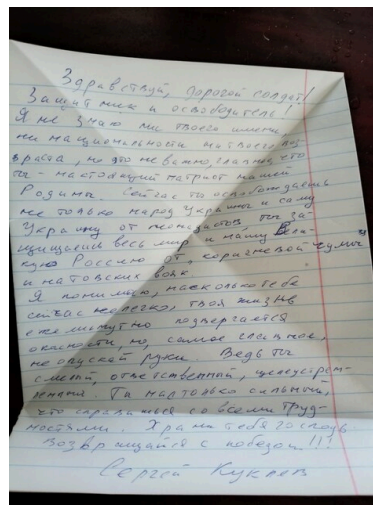 Здравствуй, дорогой солдат!
Защитник и освободитель!
Я не знаю ни твоего имени,
ни национальности ни твоего воз
раста, но это не важно, главное что
ты - настоящий патриот нашей
Родины. Сейчас ты освобождаешь
не только народ Украины и саму
Украину от неонацистов ты за-
щищаешь весь мир и нашу Вели-
кую Россию от, коричневой чумы"
и натовских вояк.
Я понимаю, насколько тебе
сейчас не легко, твоя жизнь
ежеминутно подвергается
опасности, но, самое главное,
не опускай руки. Ведь ты
смелый, ответственный, целеустрем-
ленный. Ты настолько сильный,
что справишься со всеми труд-
ностями. Храни тебя Господь.
Возвращайся с победой!!!
Сергей